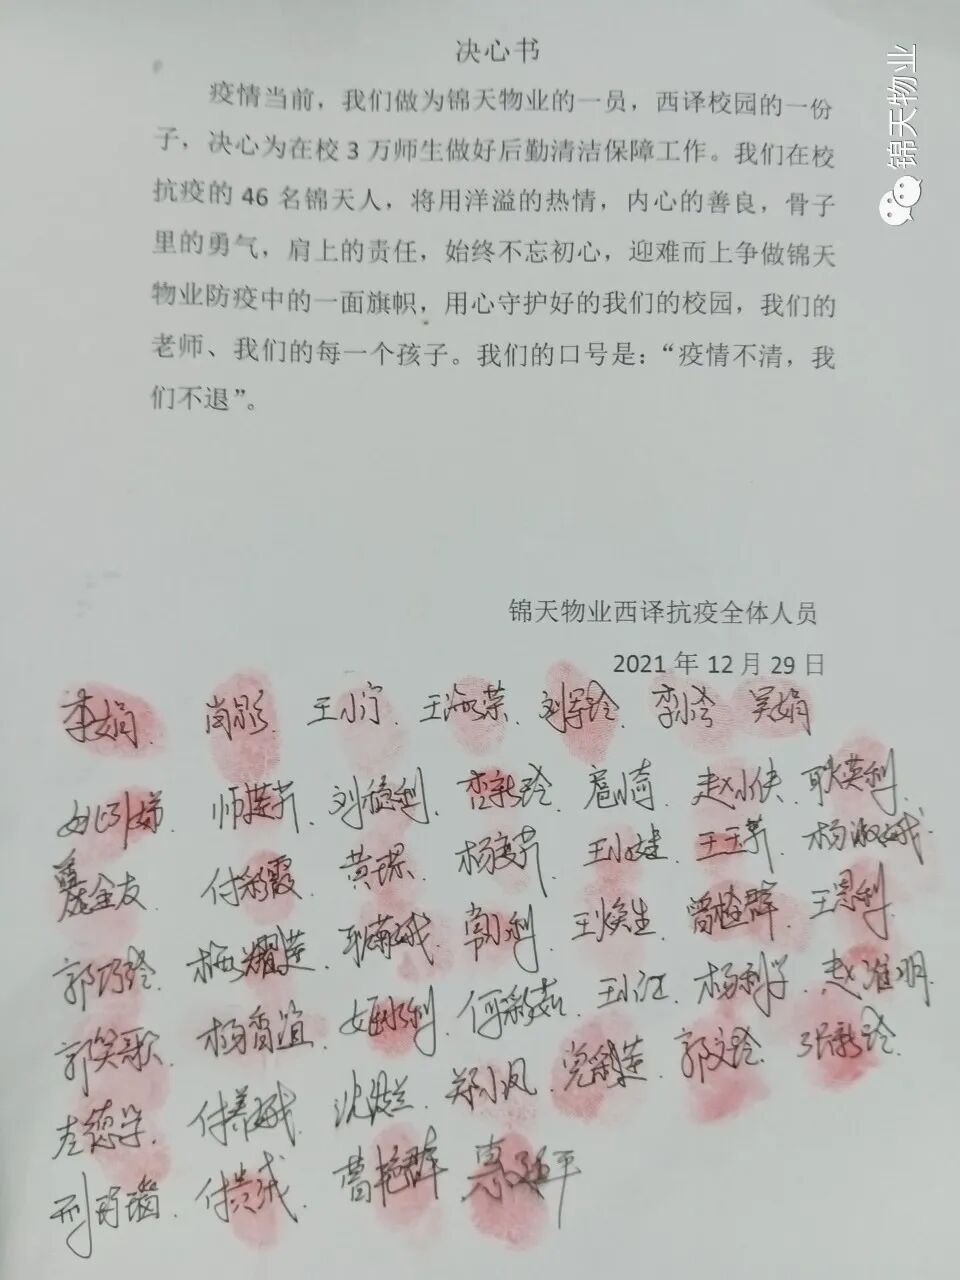 决心书
疫情当前，我们做为锦天物业的一员，西译校园的一份
子，决心为在校 3 万师生做好后勤清洁保障工作。我们在校
抗疫的 46 名锦天人，将用洋溢的热情，内心的善良，骨子
里的勇气，肩上的责任，始终不忘初心，迎难而上争做锦天
物业防疫中的一面旗帜，用心守护好的我们的校园，我们的
老师、我们的每一个孩子。我们的口号是：“疫情不清，我
们不退”。
锦天物业西译抗疫全体人员
2021 年 12 月 29 日
李娟 尚影 王小宁 吴娟
姚引娣 师莲芹 刘稳利 赵小侠 耿英利
金友 付彩霞 黄琪 杨麦芹 王小娃 王玉芹 杨淑娥
郭巧玲 杨耀莲 王焕生 曹植群 王恩利
郭笑歌 杨香谊 何彩茹 王小江 杨利学 赵淮明
左德学 沈淑兰 郑小凤 党彩莲 郭文玲 张新玲
付贵绒 曹艳群
锦天物业